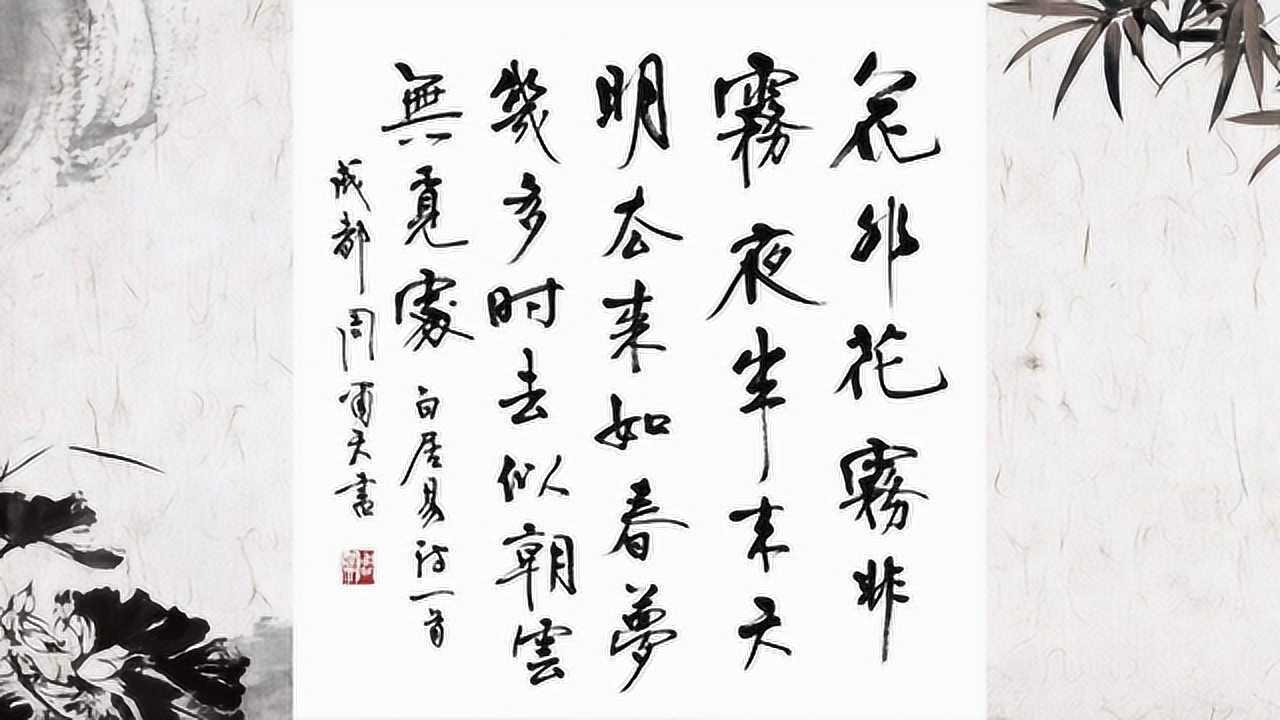 花非花霧非
霧夜半来天
明去来如春夢
幾多时去似朝雲
無覓處 白居易诗一首
成都周天書